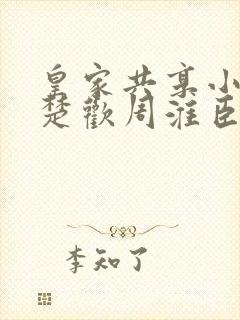 皇家共享小
楚歡周淮臣
李知了